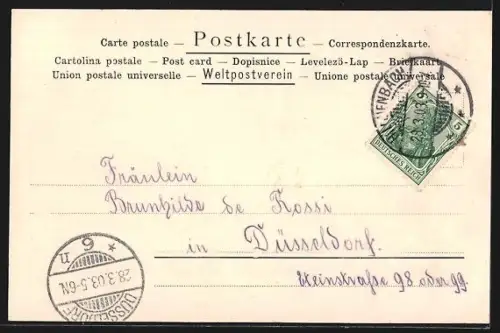 Carte postale — Postkarte — Correspondenzkarte.
Cartolina postale — Post card — Dopisnice — Levelező-Lap — Briefkaart
Union postale universelle — Weltpostverein — Unione postale universale
5
DEUTSCHES REICH
28.3.03.
Fräulein
Brunhilde de Rossi
in Düsseldorf.
Steinstraße 98 oder 99.
DÜSSELDORF
28.3.03.5-6N
9 n